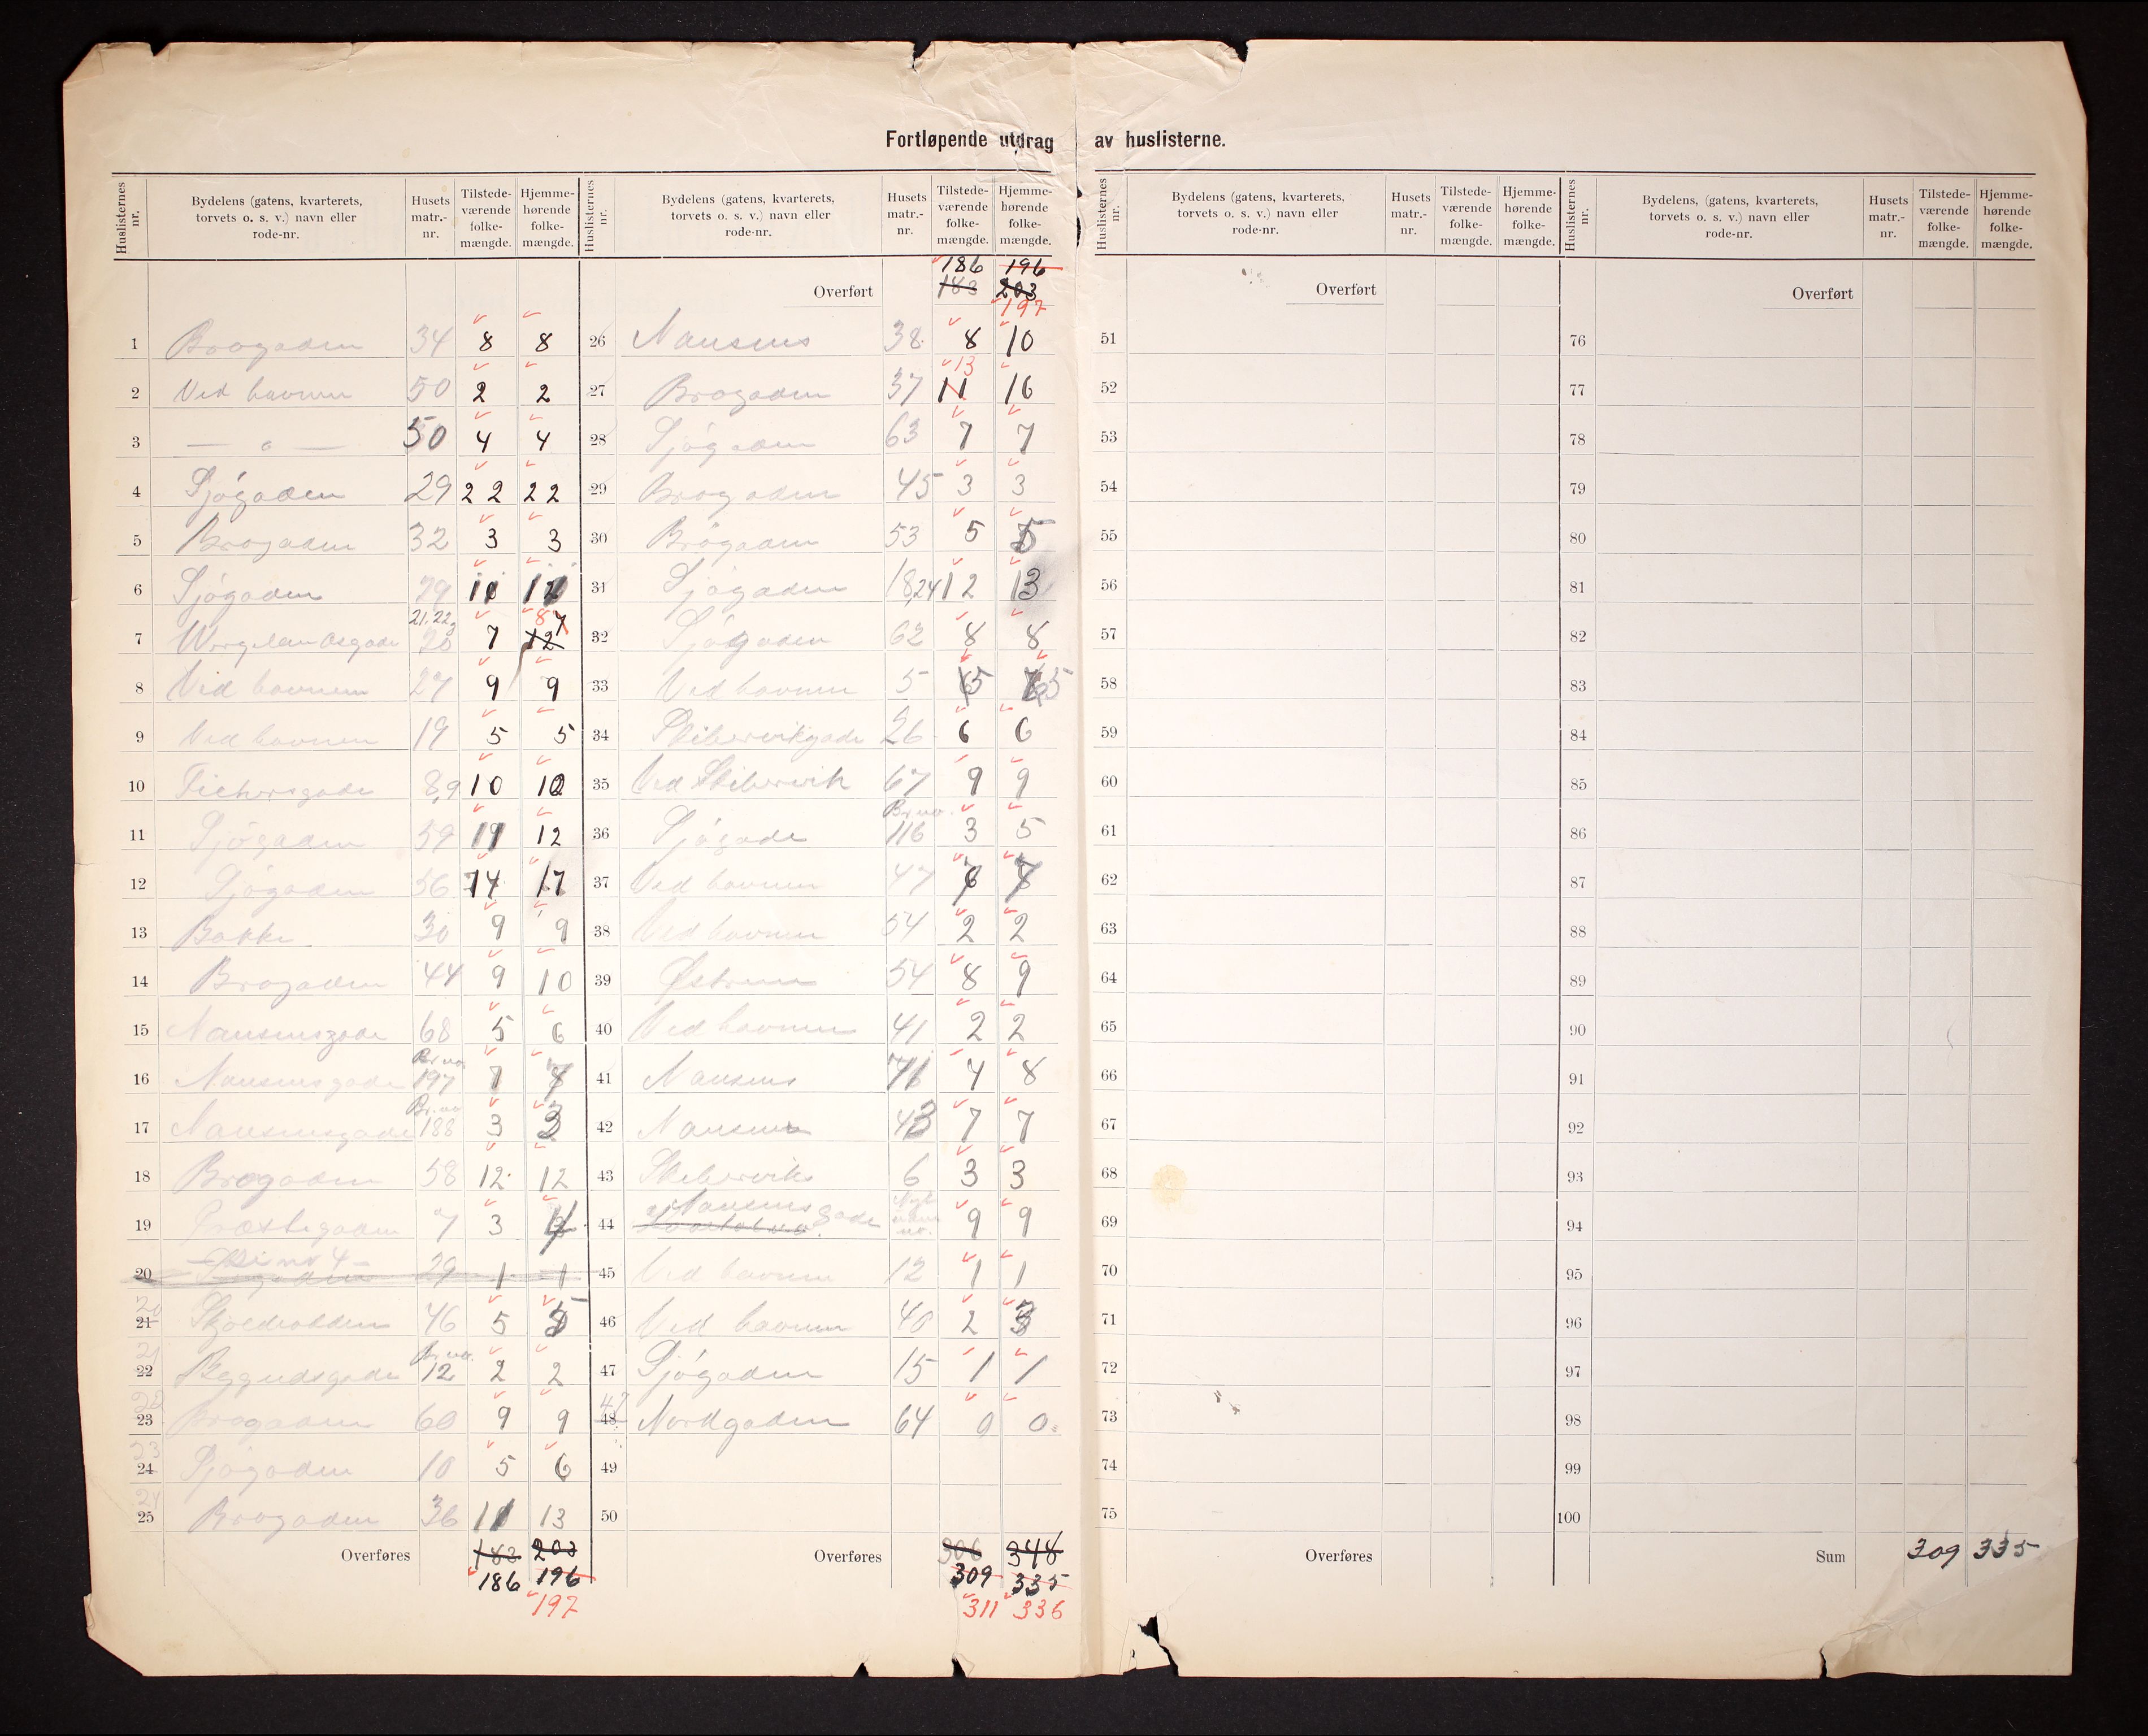 Fortløpende utdrag av huslisterne.
Huslisternes nr. Bydelens (gatens, kvarterets, torvets o. s. v.) navn eller rode-nr. Husets matr.-nr. Tilstede-værende folke-mængde. Hjemme-hørende folke-mængde.
1 Brogaden 34 8 8
2 Ved havnen 50 2 2
3 — o — 50 4 4
4 Sjøgaden 29 22 22
5 Brogaden 32 3 3
6 Sjøgaden 29
7 Wergelandsgade 21,22 7 12 8
8 Ved havnen 27 9 9
9 Ved havnen 19 5 5
10 8,9 10 10
11 Sjøgaden 59 12
12 Sjøgaden 56 14 17
13 Bakke 30 9 9
14 Brogaden 44 9 10
15 Nansensgade 68 5 6
16 Nansensgade Br. no. 197 7
17 Nansensgade Br. no 188 3 3
18 Brogaden 58 12 12
19 Præstegaden 7 3
20 29 1 1
20 21 46 5 5
21 22 Br. no. 12 2 2
22 23 Brogaden 60 9 9
23 24 Sjøgaden 10 5 6
24 25 Brogaden 36 11 13
Overføres 183 203
186 196
197
Huslisternes nr. Bydelens (gatens, kvarterets, torvets o. s. v.) navn eller rode-nr. Husets matr.-nr. Tilstede-værende folke-mængde. Hjemme-hørende folke-mængde.
186 196
Overført 183 203
197
26 Nansens 38 8 10
13
27 Brogaden 37 11 16
28 Sjøgaden 63 7 7
29 Brogaden 45 3 3
30 Brogaden 53 5 5
31 Sjøgaden 18,24 12 13
32 Sjøgaden 62 8 8
33 Ved havnen 5 5 5
34 Skibervikgade 26 6 6
35 Ved Skibervik 67 9 9
36 Sjøgade Br. no. 116 3 5
37 Ved havnen 47
38 Ved havnen 54 2 2
39 54 8 9
40 Ved havnen 41 2 2
41 Nansens 71 4 8
42 Nansens 43 7 7
43 Skibervik 6 3 3
44 Nansens gade 9 9
45 Ved havnen 12 1 1
46 Ved havnen 40 2 3
47 Sjøgaden 15 1 1
47 48 Nordgaden 64 0 0
49
50
Overføres 306 348
309 335
311 336
Huslisternes nr. Bydelens (gatens, kvarterets, torvets o. s. v.) navn eller rode-nr. Husets matr.-nr. Tilstede-værende folke-mængde. Hjemme-hørende folke-mængde.
Overført
51
52
53
54
55
56
57
58
59
60
61
62
63
64
65
66
67
68
69
70
71
72
73
74
75
Overføres
Huslisternes nr. Bydelens, (gatens, kvarterets, torvets o. s. v.) navn eller rode-nr. Husets matr.-nr. Tilstede-værende folke-mængde. Hjemme-hørende folke-mængde.
Overført
76
77
78
79
80
81
82
83
84
85
86
87
88
89
90
91
92
93
94
95
96
97
98
99
100
Sum 309 335